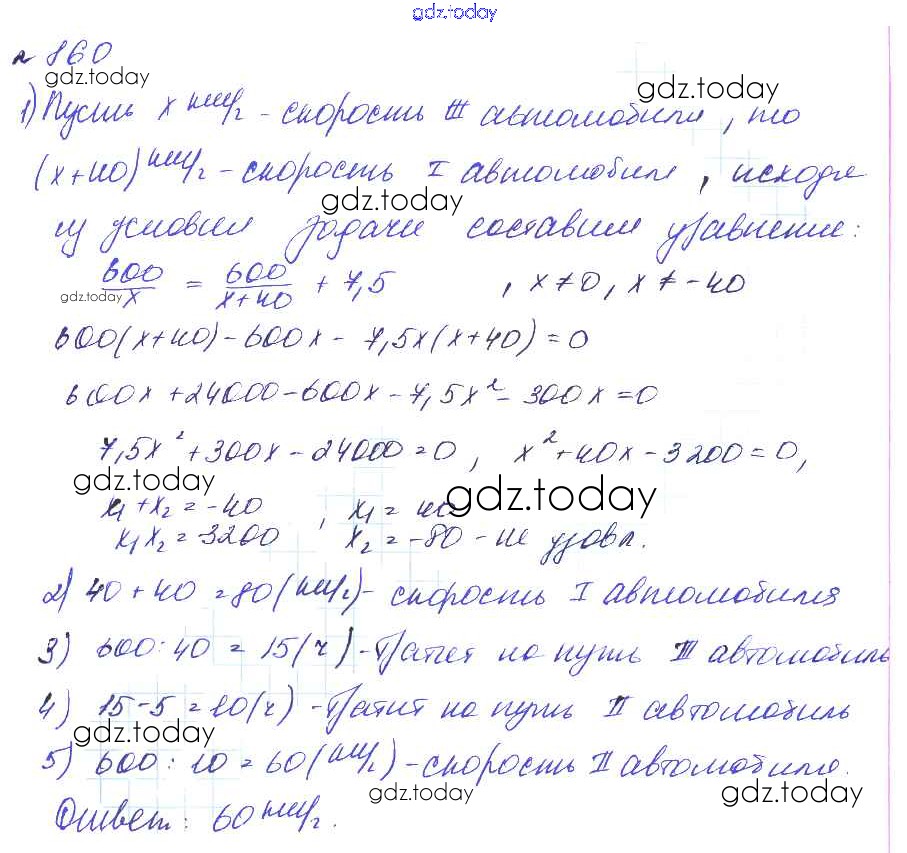 gdz.today
№ 860
gdz.today
1) Пусть x км/ч - скорость III автомобиля, то
gdz.today
(x+40) км/ч - скорость I автомобиля, исходя
gdz.today
из условия задачи составим уравнение:
600/x = 600/(x+40) + 7,5 , x≠0, x≠-40
gdz.today
600(x+40)-600x- 7,5x(x+40)=0
gdz.today
600x+24000-600x-7,5x²-300x=0
7,5x²+300x-24000=0, x²+40x-3200=0,
gdz.today
gdz.today
x₁+x₂=-40 , x₁=40
x₁x₂=3200 x₂=-80 - не удовл.
2) 40+40=80(км/ч)- скорость I автомобиля
3) 600:40=15(ч)-Тратит на путь III автомобиль
4) 15-5=10(ч)-Тратит на путь II автомобиль
gdz.today
5) 600:10=60(км/ч)-скорость II автомобиля.
gdz.today
gdz.today
Ответ: 60 км/ч.